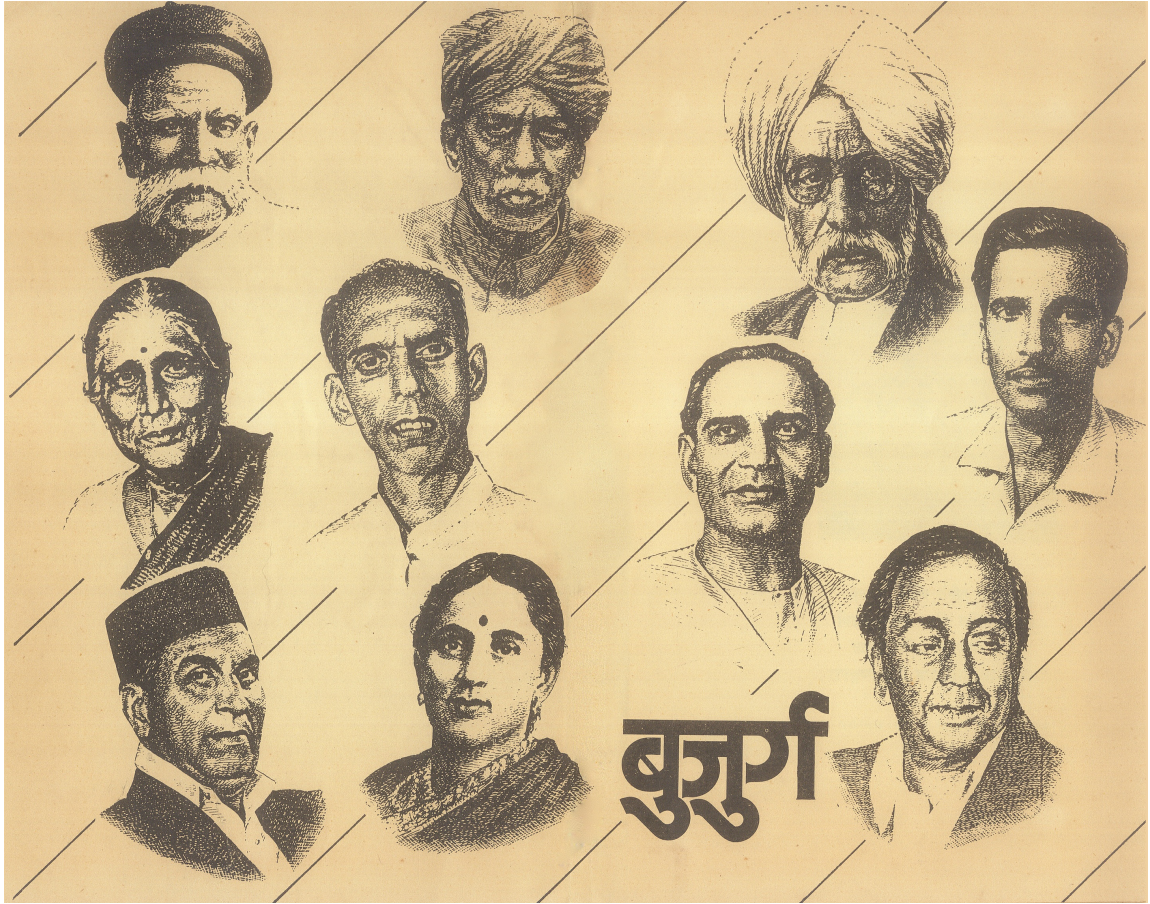 बुजुर्ग